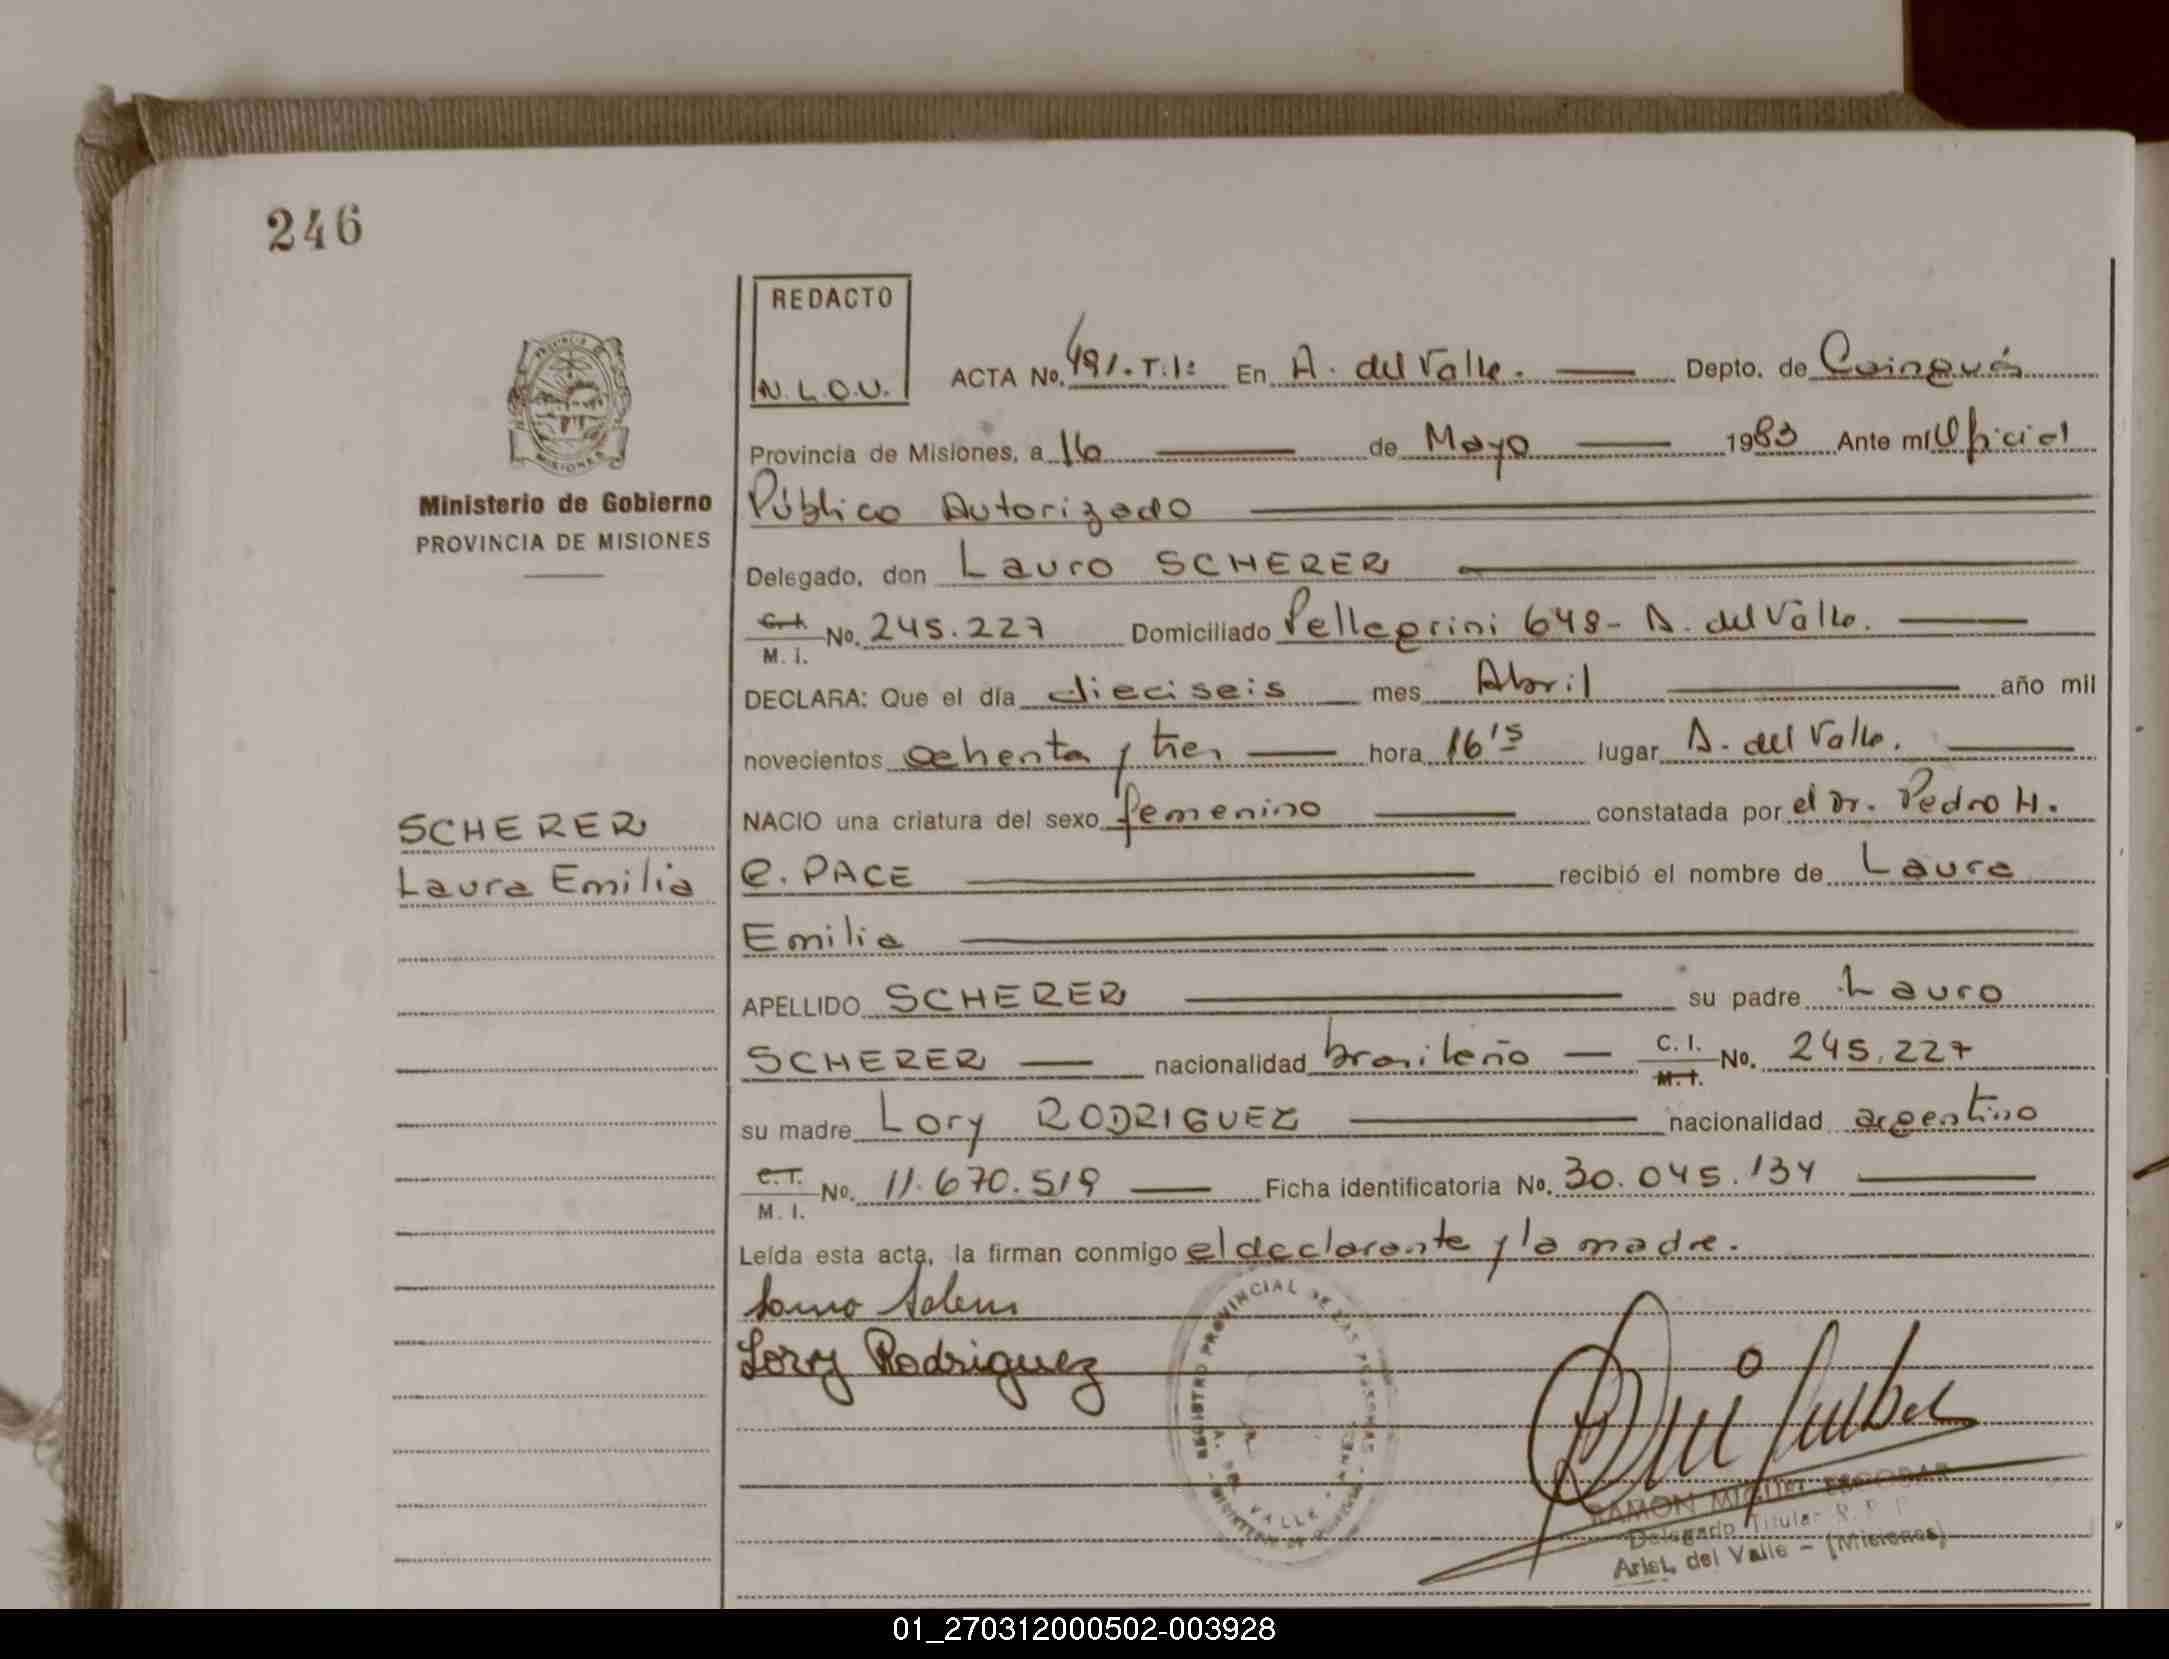 246
REDACTO
N.L.O.U.
ACTA No. 491.T.1: En A. del Valle. Depto. de Cainguás
Provincia de Misiones, a 16 de Mayo 1983 Ante mí Oficial
Ministerio de Gobierno
PROVINCIA DE MISIONES
Público Autorizado
Delegado, don Lauro SCHERER
C.I. M. I. No. 245.227 Domiciliado Pellegrini 648- A. del Valle.
DECLARA: Que el día dieciseis mes Abril año mil
novecientos ochenta y tres hora 16'5 lugar A. del Valle.
SCHERER
Laura Emilia
NACIO una criatura del sexo femenino constatada por el Dr. Pedro H.
C. PACE recibió el nombre de Laura
Emilia
APELLIDO SCHERER su padre Lauro
SCHERER nacionalidad brasileño C. I. M.I. No. 245.227
su madre Lory RODRIGUEZ nacionalidad argentino
C.I. M. I. No. 11.670.519 Ficha identificatoria No. 30.045.134
Leída esta acta, la firman conmigo el declarante y la madre.
Lory Rodriguez
REGISTRO PROVINCIAL DE LAS PERSONAS
A. DEL VALLE
RAMON MIGUEL ESCOBAR
Delegado Titular R. P. P
Arist. del Valle - (Misiones)
01_270312000502-003928